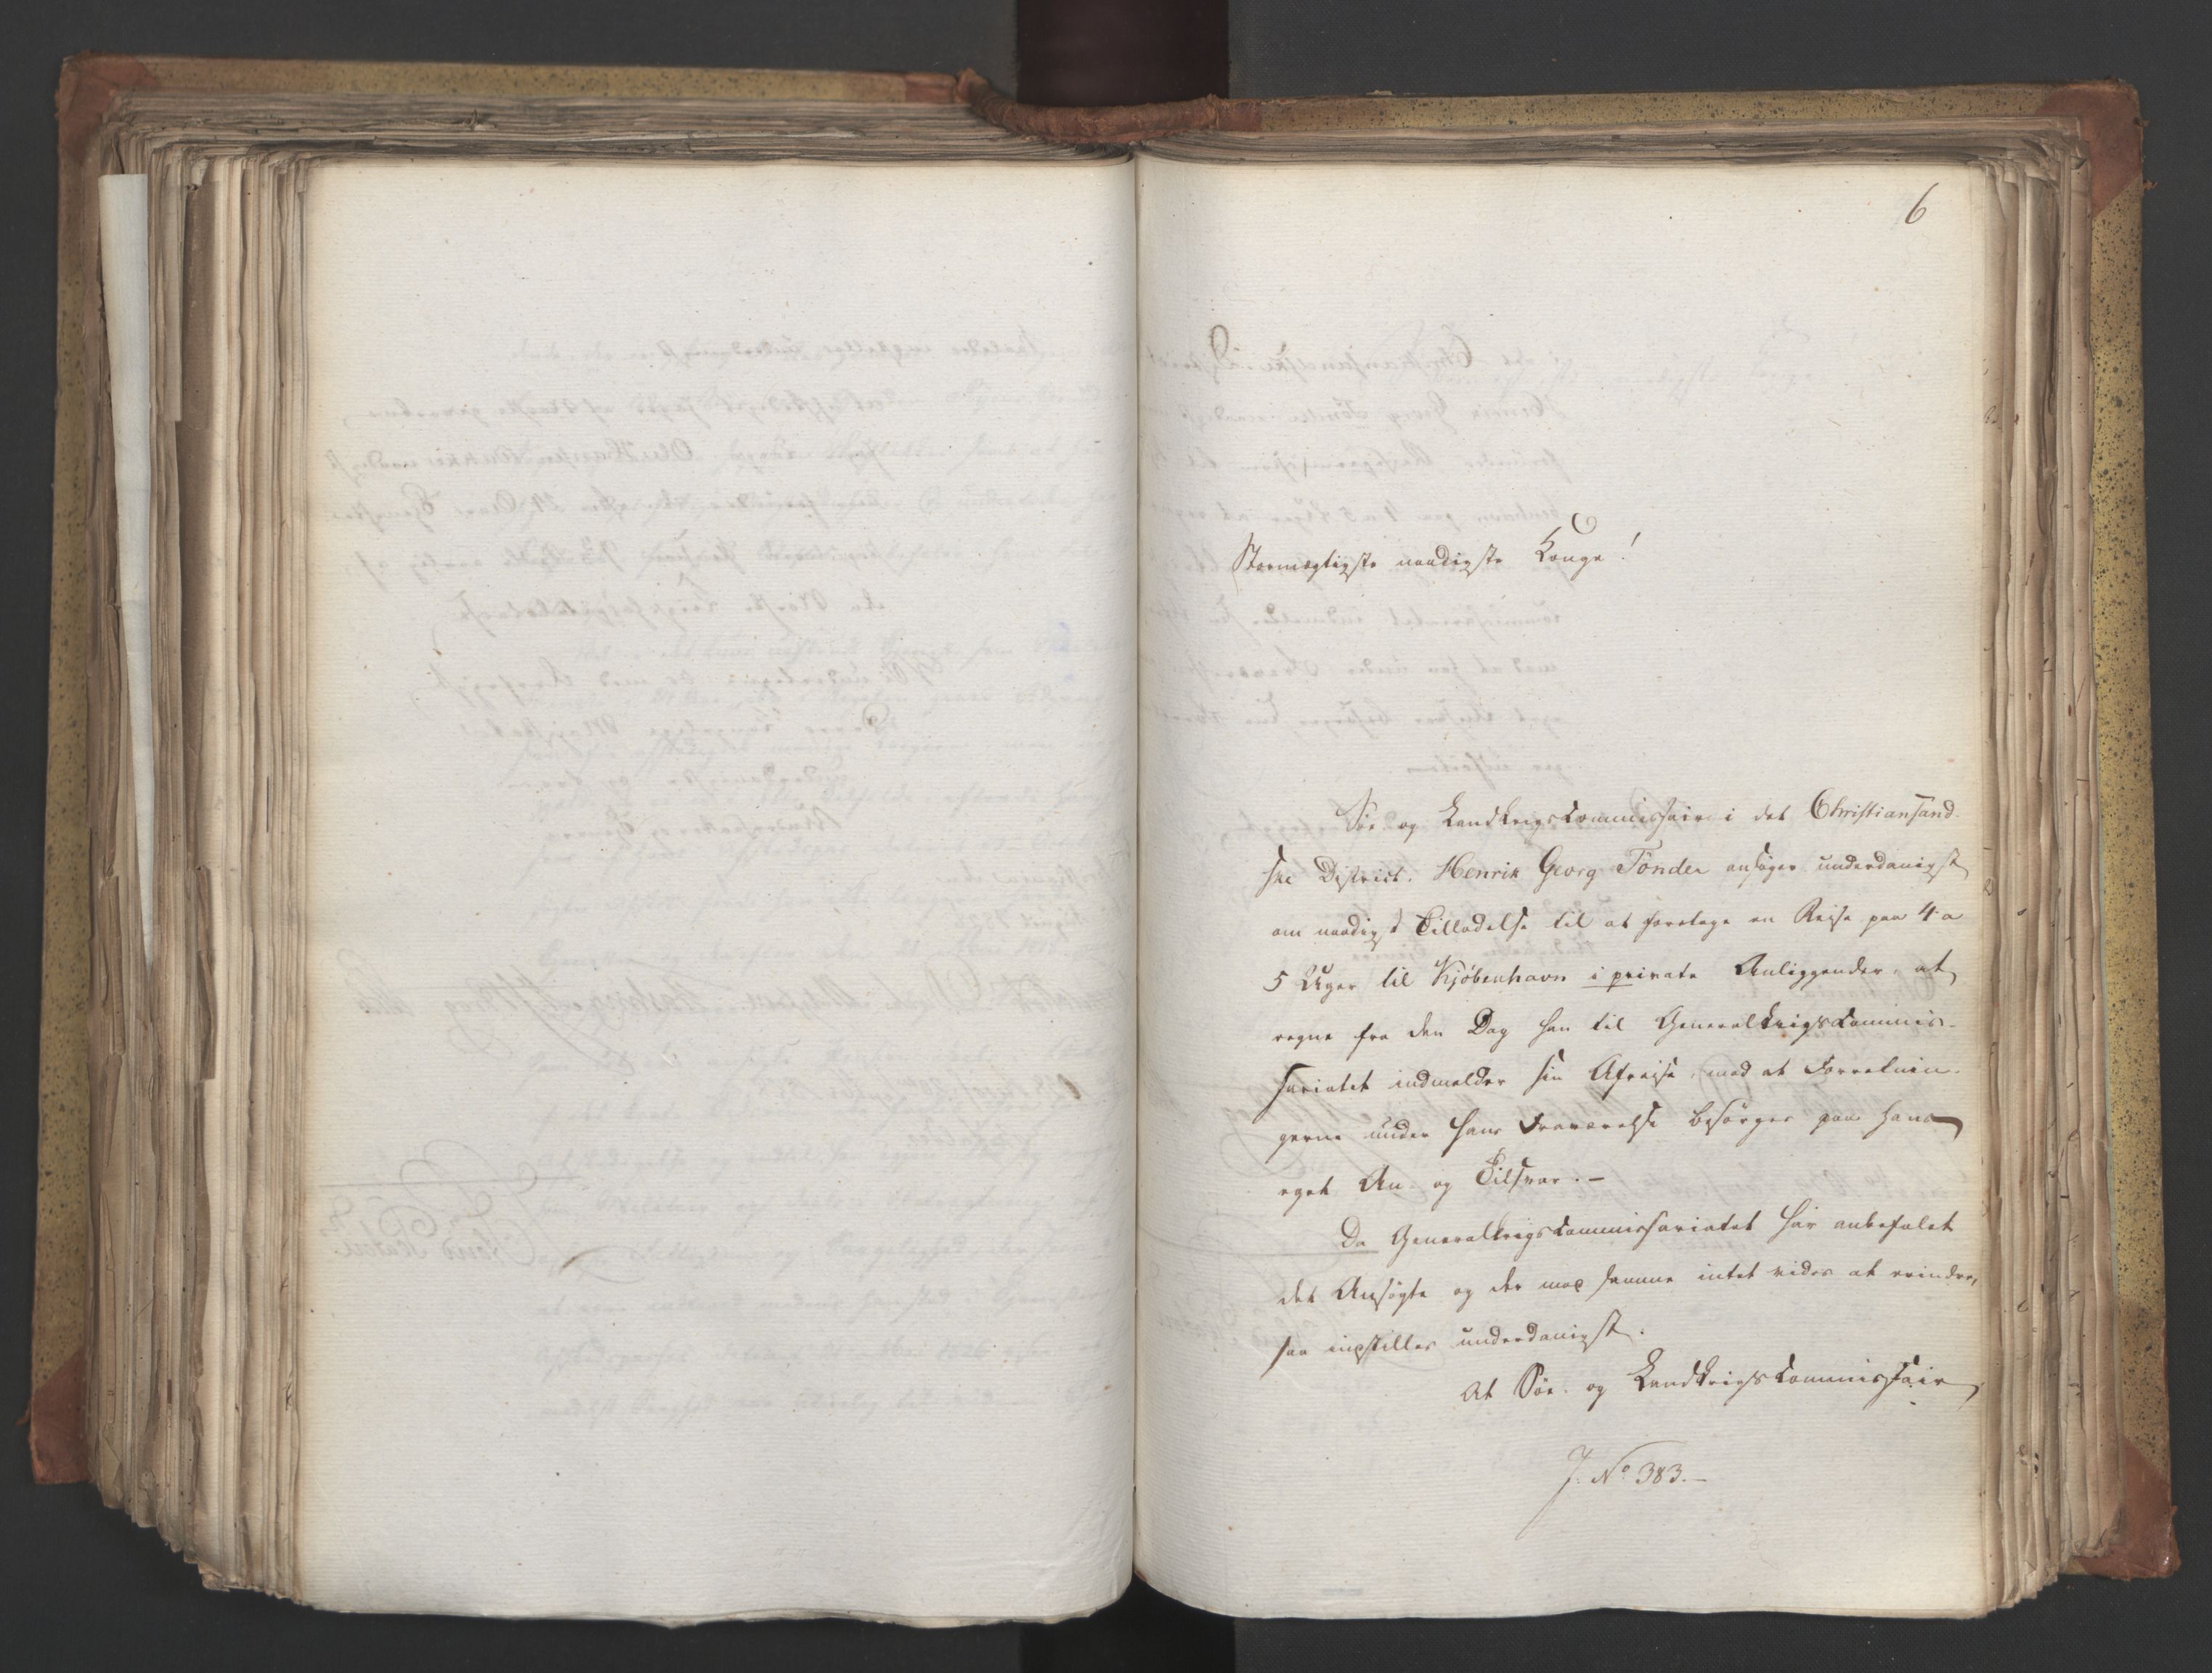 6
Stormægtigste naadigste Konge!
Söe- og Landkrigscommissair i det Christiansand-
ske District. Henrik Georg Tönder ansöger underdanigst
om naadigst Tilladelse til at foretage en Reise paa 4 a
5 Uger til Kjöbenhavn i private Anliggender, at
regne fra den Dag han til Generalkrigscommis-
sariatet indmelder sin Afreise, mod at Forretnin-
gerne under hans Fraværelse besörges paa hans
eget An- og Tilsvar.-
Da Generalkrigscommissariatet har anbefalet
det Ansögte og der mod samme intet vides at erindre,
saa indstilles underdanigst:
At Söe- og Landkrigscommissair
J. No 383.-